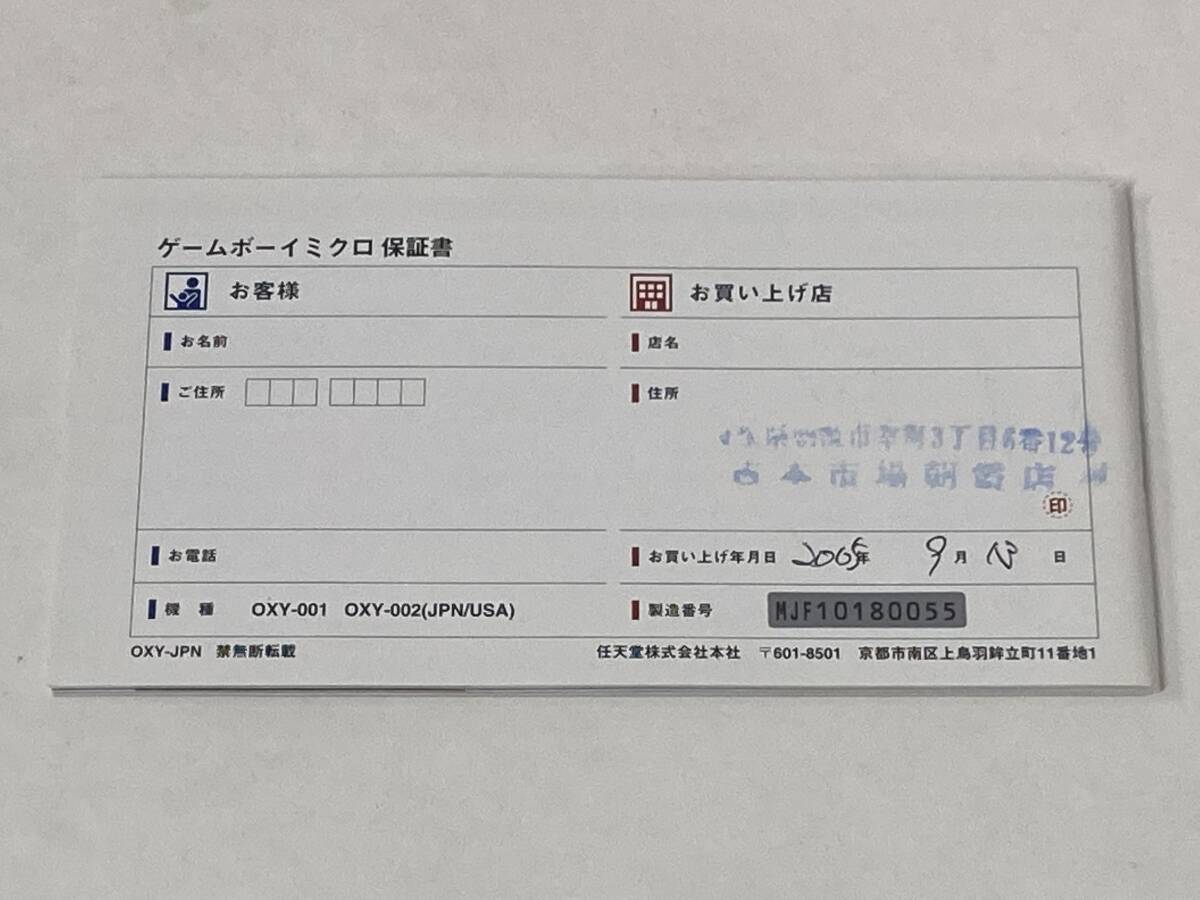 ゲームボーイミクロ 保証書
お客様
お名前
ご住所
お電話
機 種 OXY-001 OXY-002(JPN/USA)
お買い上げ店
店名
住所
市幸町3丁目6番12号
古本市場朝霞店
印
お買い上げ年月日 2005年 9月 13日
製造番号 MJF10180055
OXY-JPN 禁無断転載
任天堂株式会社本社 〒601-8501 京都市南区上鳥羽鉾立町11番地1